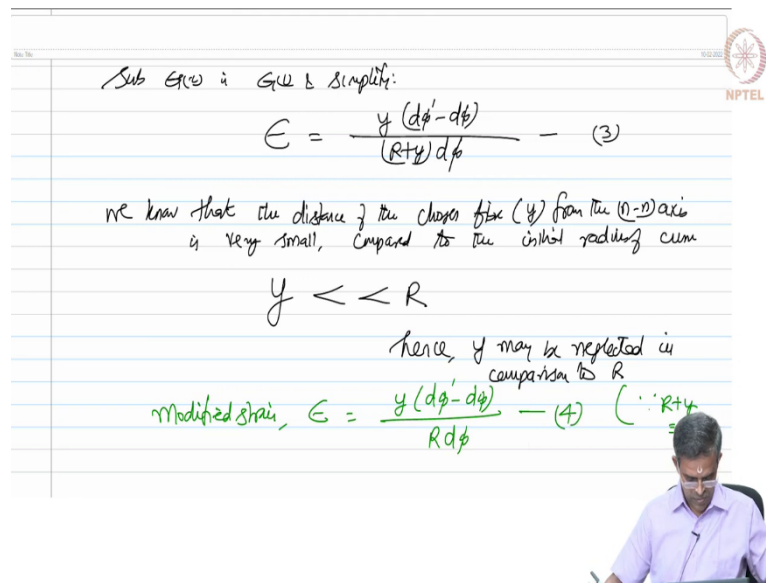 Note Title
10-02-2022
NPTEL
Sub Eq(2) in Eq(1) & simplify:
ϵ = y (dφ' - dφ) / (R+y) dφ — (3)
we know that the distance of the chosen fibre (y) from the (n-n) axis
is very small, compared to the initial radius of curv
y << R
hence, y may be neglected in
comparison to R
Modified strain, ϵ = y (dφ' - dφ) / R dφ — (4) (∵ R+y